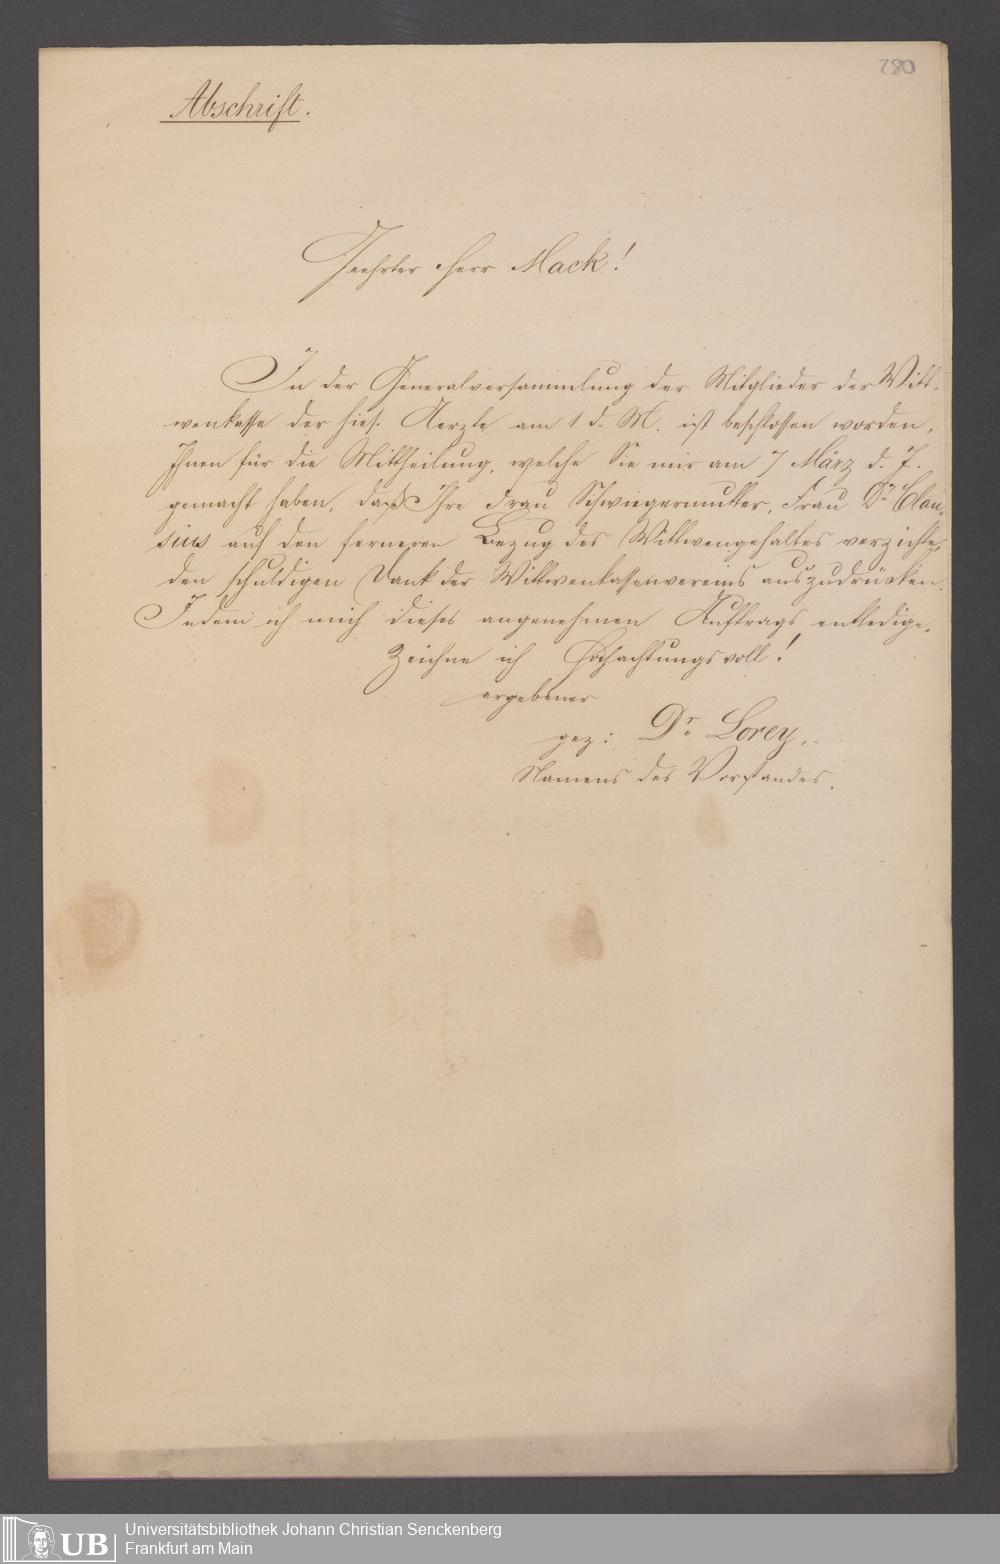 280
Abschrift.
Geehrter Herr Mack!
In der Generalversammlung der Mitglieder der Witt-
wenkasse der hies. Aerzte am 1 d. M. ist beschlossen worden,
Ihnen für die Mittheilung, welche Sie mir am 7 März d. J.
gemacht haben, daß Ihre Frau Schwiegermutter, Frau Dr Clau-
sius auf den ferneren Bezug des Wittwengehaltes verzichte,
den schuldigen Dank der Wittwenkassenvereins auszudrücken.
Indem ich mich dieses angenehmen Auftrags entledige,
zeichne ich Hochachtungsvoll!
ergebener
gez: Dr Lorey.
Namens des Vorstandes.
UB
Universitätsbibliothek Johann Christian Senckenberg
Frankfurt am Main